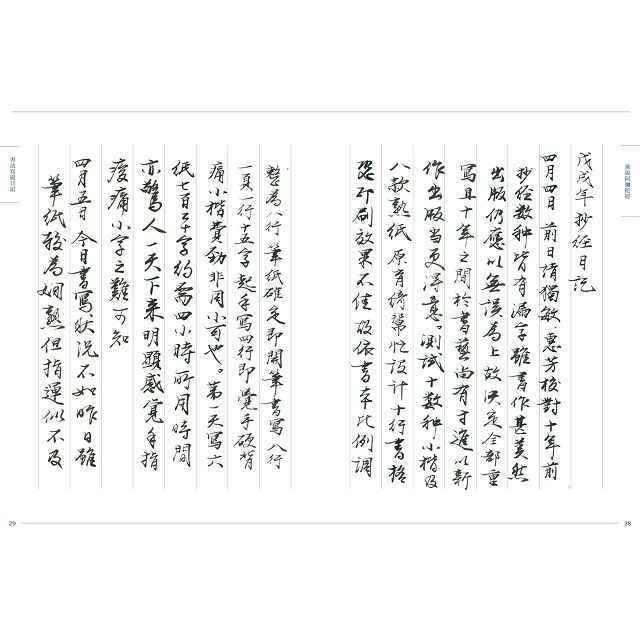 佛說阿彌陀經
戊戌年抄經日記
四月四日 前日請獨敏、惠芳校對十年前
抄經數种皆有漏字雖書作甚美然
出版仍應以無誤為上故決定全部重
寫且十年之間於書藝尚有寸進以新
作出版當更得意。測試十數种小楷及
八款熟紙 原育綺幫忙設計十行書格
恐印刷效果不佳故依書本比例調
28
整為八行 筆紙確定即開筆書寫八行
一頁一行十五字起手寫四行即覺手硬背
痛小楷費勁非同小可也。第一天寫六
紙七百二十字約需四小時所用時間
亦驚人一天下來明顯感覺手指
痠痛小字之難可知
四月五日 今日書寫狀況不如昨日雖
筆紙較為嫻熟但指運似不及
書法寫經日記
29